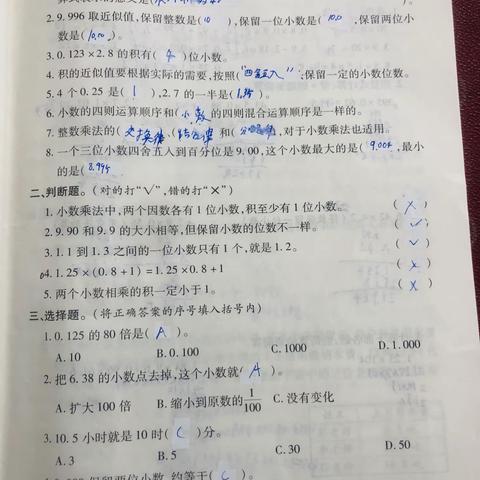 2. 9.996 取近似值,保留整数是( 10 ),保留一位小数是( 10.0 ),保留两位小
数是( 10.00 )。
3. 0.123×2.8 的积有( 4 )位小数。
4. 积的近似值要根据实际的需要,按照( "四舍五入" )保留一定的小数位数。
5. 4 个 0.25 是( 1 ),2.7 的一半是( 1.35 )。
6. 小数的四则运算顺序和( 小数 )的四则混合运算顺序是一样的。
7. 整数乘法的( 交换律 )( 结合律 )和( 分配律 ),对于小数乘法也适用。
8. 一个三位小数四舍五入到百分位是 9.00,这个小数最大的是( 9.004 ),最小
的是( 8.995 )。
二、判断题。(对的打"√",错的打"×")
1. 小数乘法中,两个因数各有 1 位小数,积至少有 1 位小数。 ( × )
2. 9.90 和 9.9 的大小相等,但保留小数的位数不一样。 ( √ )
3. 1.1 到 1.3 之间的一位小数只有 1 个,就是 1.2。 ( √ )
4. 1.25×(0.8+1)=1.25×0.8+1 ( × )
5. 两个小数相乘的积一定小于 1。 ( × )
三、选择题。(将正确答案的序号填入括号内)
1. 0.125 的 80 倍是( A )。
A. 10 B. 0.100 C. 1000 D. 1.000
2. 把 6.38 的小数点去掉,这个小数就( A )。
A. 扩大 100 倍 B. 缩小到原数的1/100 C. 没有变化
3. 10.5 小时就是 10 时( C )分。
A. 3 B. 5 C. 30 D. 50
保留两位小数,约等于( C )。